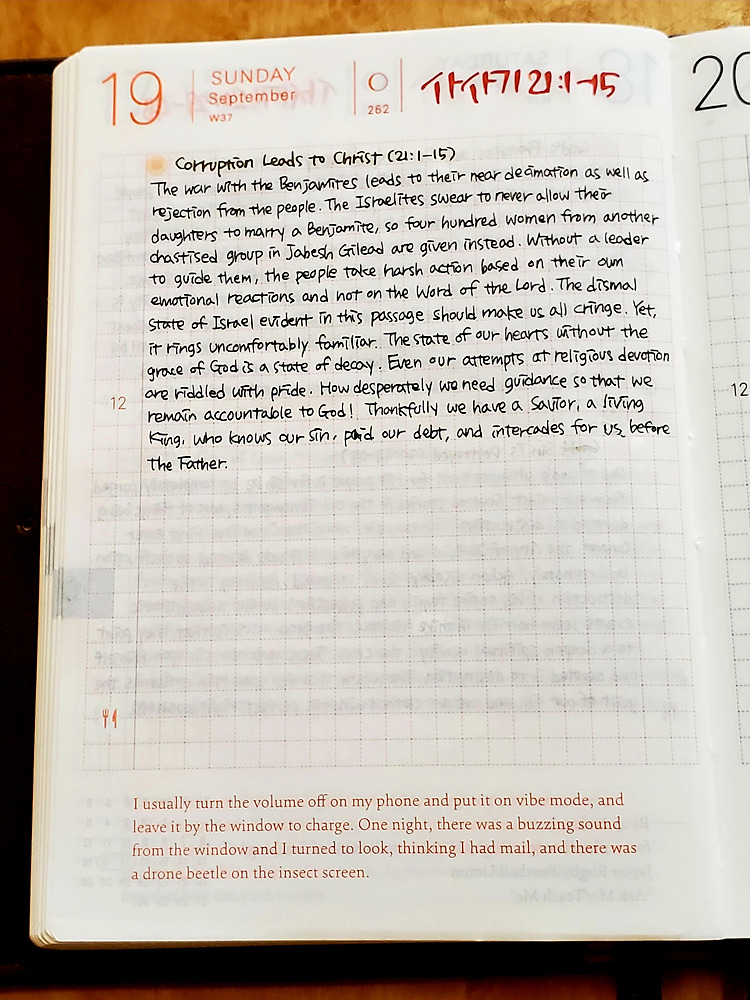 19
SUNDAY
September
W37
262
사사기 21:1-15
20
Corruption Leads to Christ (21:1-15)
The war with the Benjamites leads to their near decimation as well as
rejection from the people. The Israelites swear to never allow their
daughters to marry a Benjamite, so four hundred women from another
chastised group in Jabesh Gilead are given instead. Without a leader
to guide them, the people take harsh action based on their own
emotional reactions and not on the Word of the Lord. The dismal
state of Israel evident in this passage should make us all cringe. Yet,
it rings uncomfortably familiar. The state of our hearts without the
grace of God is a state of decay. Even our attempts at religious devotion
are riddled with pride. How desperately we need guidance so that we
remain accountable to God! Thankfully we have a Savior, a living
King, who knows our sin, paid our debt, and intercades for us before
the Father.
12
12
I usually turn the volume off on my phone and put it on vibe mode, and
leave it by the window to charge. One night, there was a buzzing sound
from the window and I turned to look, thinking I had mail, and there was
a drone beetle on the insect screen.